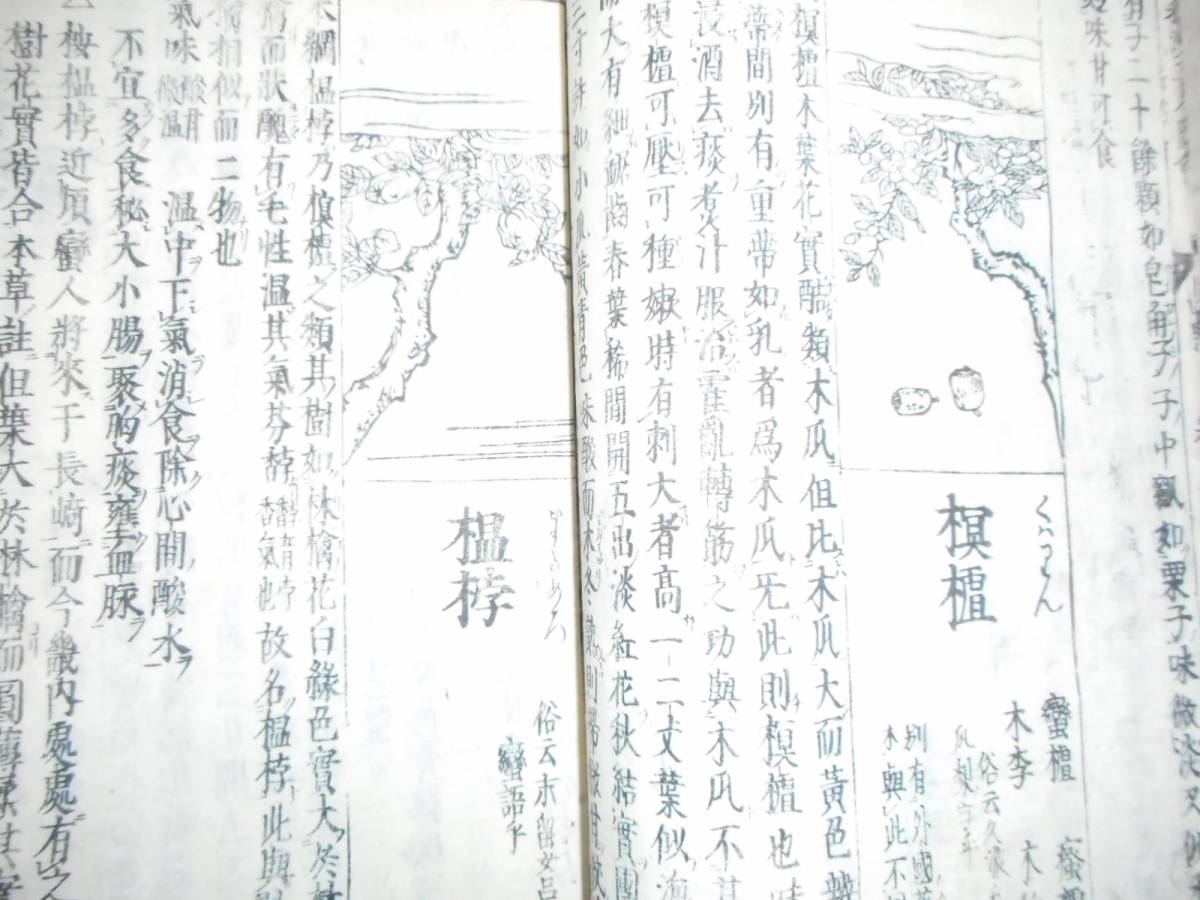 有子二十餘顆如皂角子子中瓤如栗子味微淡
味甘可食
くわりん
榠樝
蠻樝
木李
俗云久波
別有外國
木與此不
榠樝木葉花實酷類木瓜但比木瓜大而黃色
蒂間別有重蒂如乳者爲木瓜无此則榠樝也
浸酒去痰煮汁服治霍亂轉筋之功與木瓜不
榠樝可壓可種嫩時有刺大者高一二丈葉似海
大有細鋸齒春葉稀間開五出淡紅花秋結實團
三寸許如小瓜黃青色味酸而
榲桲
俗云末留女呂
蠻語乎
綱榲桲乃榠樝之類其樹如林檎花白綠色實大於
而狀醜有毛性溫其氣芬馞故名榲桲此與
相似而二物也
氣味酸甘微溫 溫中下氣消食除心間酸水
不宜多食秘大小腸聚胸痰壅血脉
按榲桲近頃蠻人將來于長崎而今畿內處處有之
樹花實皆合本草註但葉大於林檎而圓薄